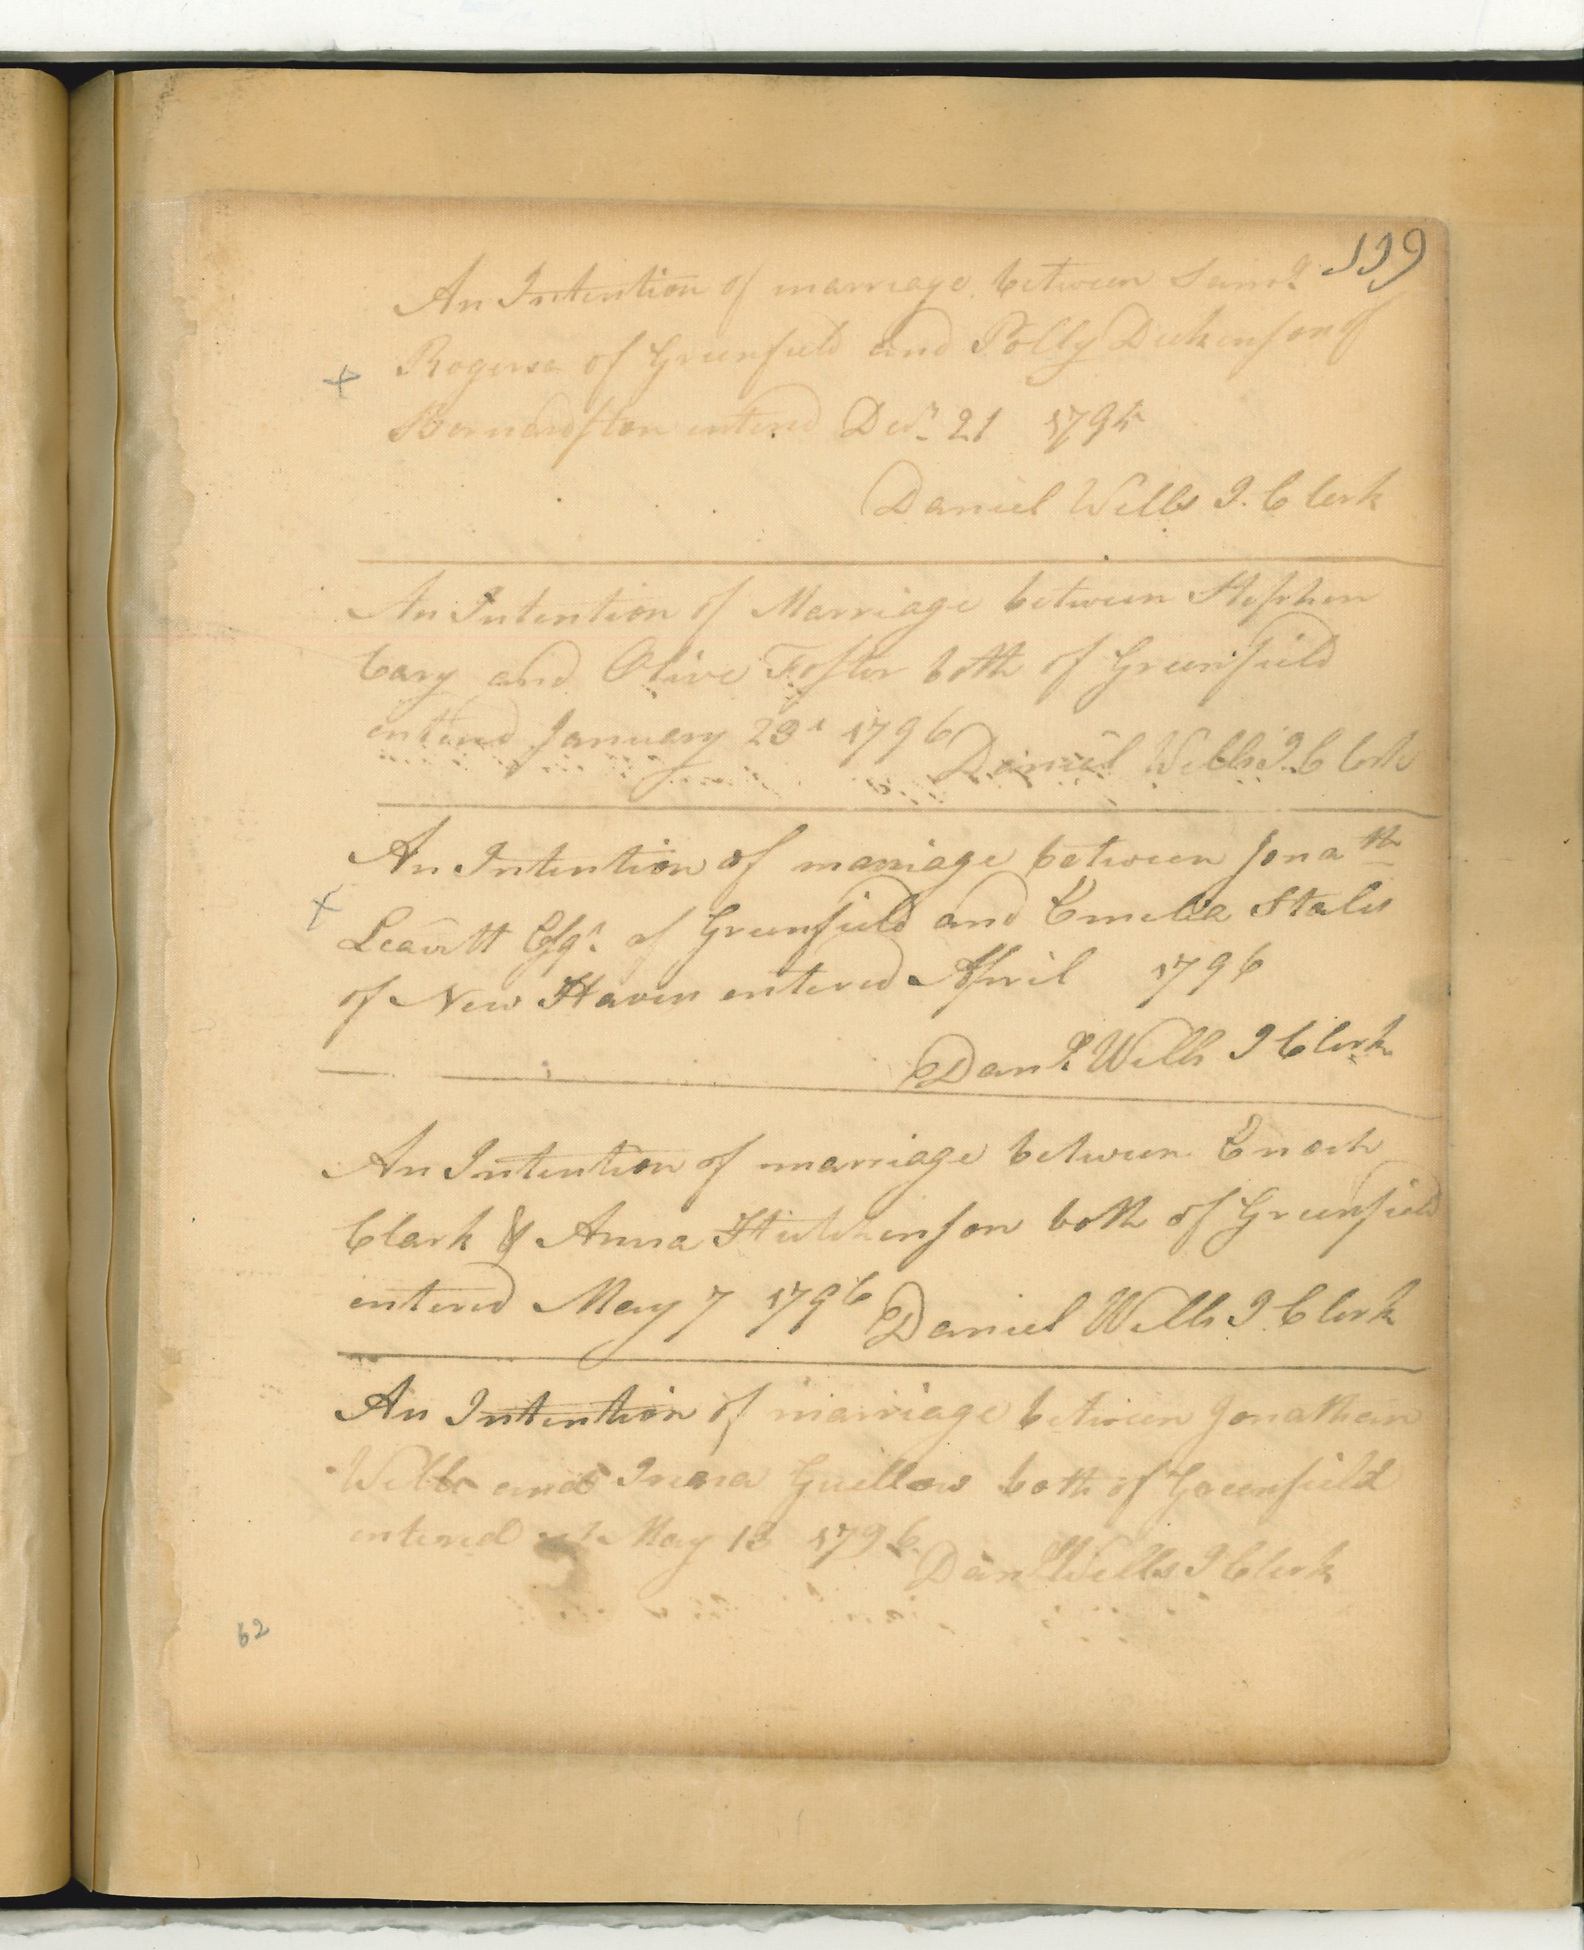 119
An Intention of marriage between Saml.
+ Rogers of Greenfield and Polly Dickinson of
Bernardston entered Decr. 21 1795
Daniel Wells T. Clerk
An Intention of Marriage between Stephen
Cary and Olive Foster both of Greenfield
entered January 23d 1796 Daniel Wells T. Clerk
An Intention of marriage between Jonath
+ Leavitt Esqr. of Greenfield and Emelia Stales
of New Haven entered April 1796
Danl. Wells T Clerk
An Intention of marriage between Enoch
Clark & Anna Hutchinson both of Greenfield
entered May 7 1796 Daniel Wells T. Clerk
An Intention of marriage between Jonathan
Wells and Guellow both of Greenfield
entered May 13 1796 Danl Wells T Clerk
62